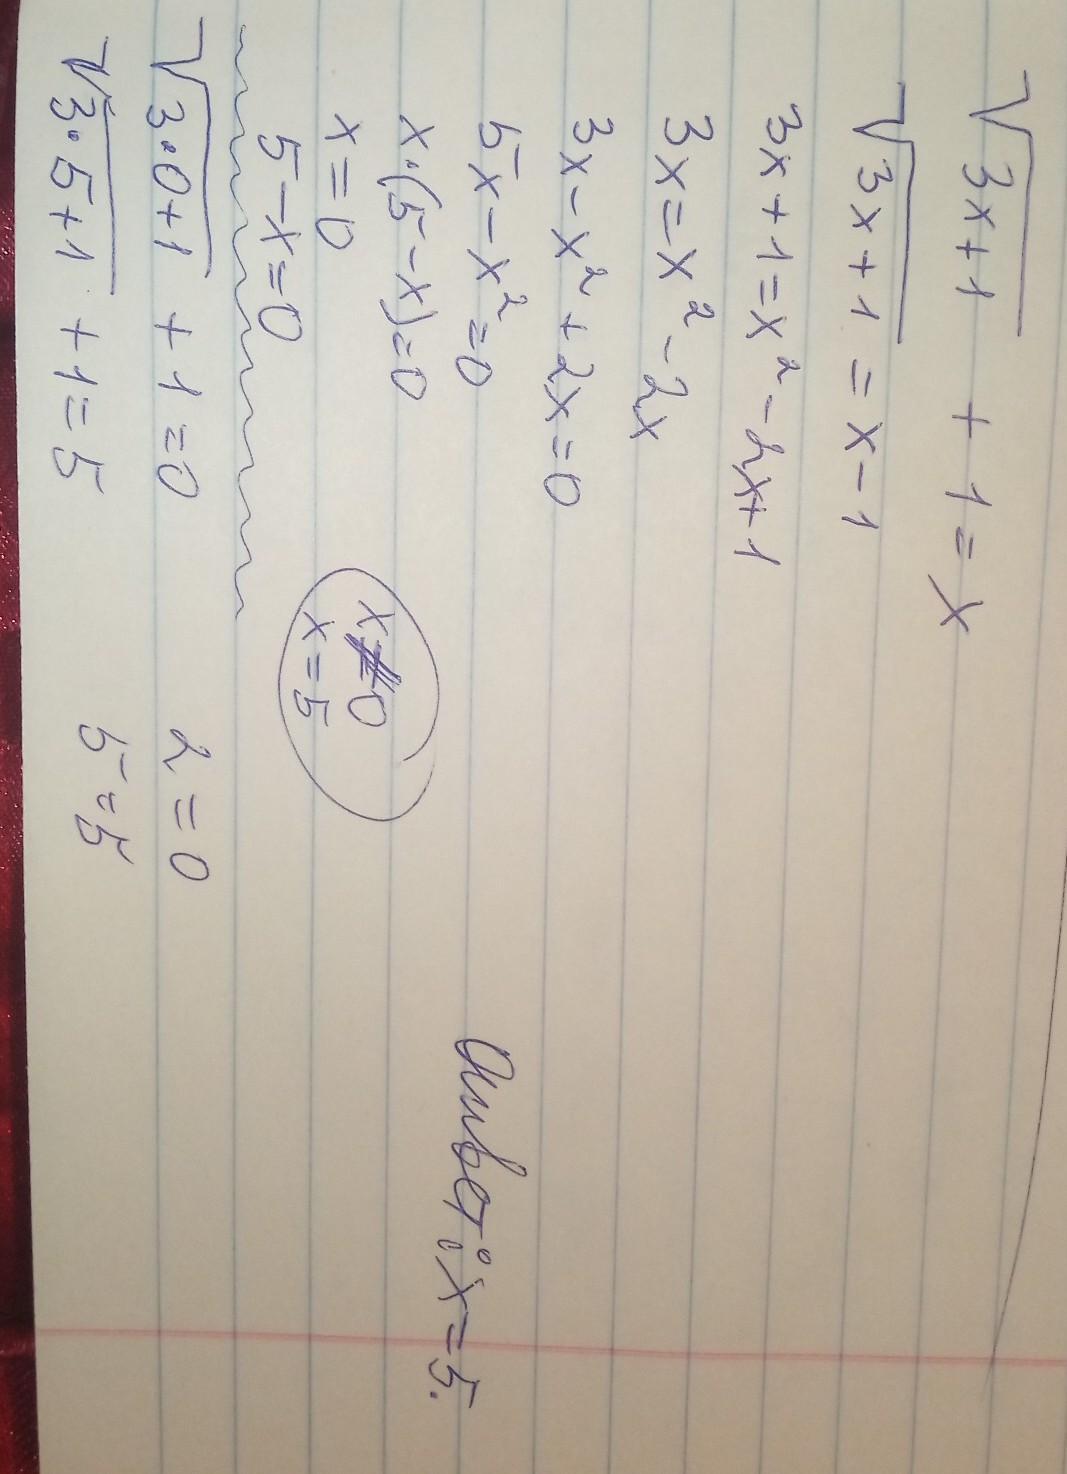 √3x+1 + 1 = x
√3x+1 = x-1
3x+1=x²-2x+1
3x=x²-2x
3x-x²+2x=0
5x-x²=0
x·(5-x)=0
x=0
5-x=0
x≠0
x=5
√3·0+1 + 1 = 0 2=0
√3·5+1 + 1 = 5 5=5
Ответ: x=5.